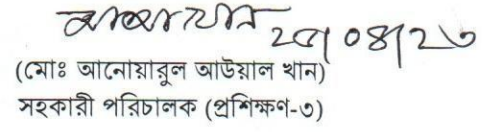 ২৫/০৪/২৩
(মোঃ আনোয়ারুল আউয়াল খান)
সহকারী পরিচালক (প্রশিক্ষণ-৩)